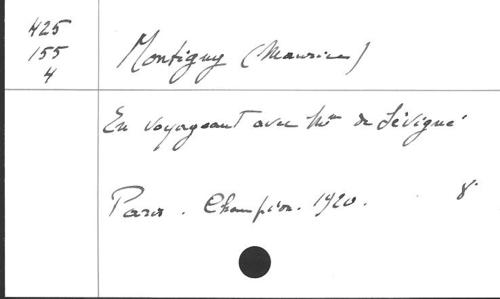 425
155
4
Montigny (Maurice)
En voyageant avec Mme de Sévigné
Paris. Champion. 1920. 8°